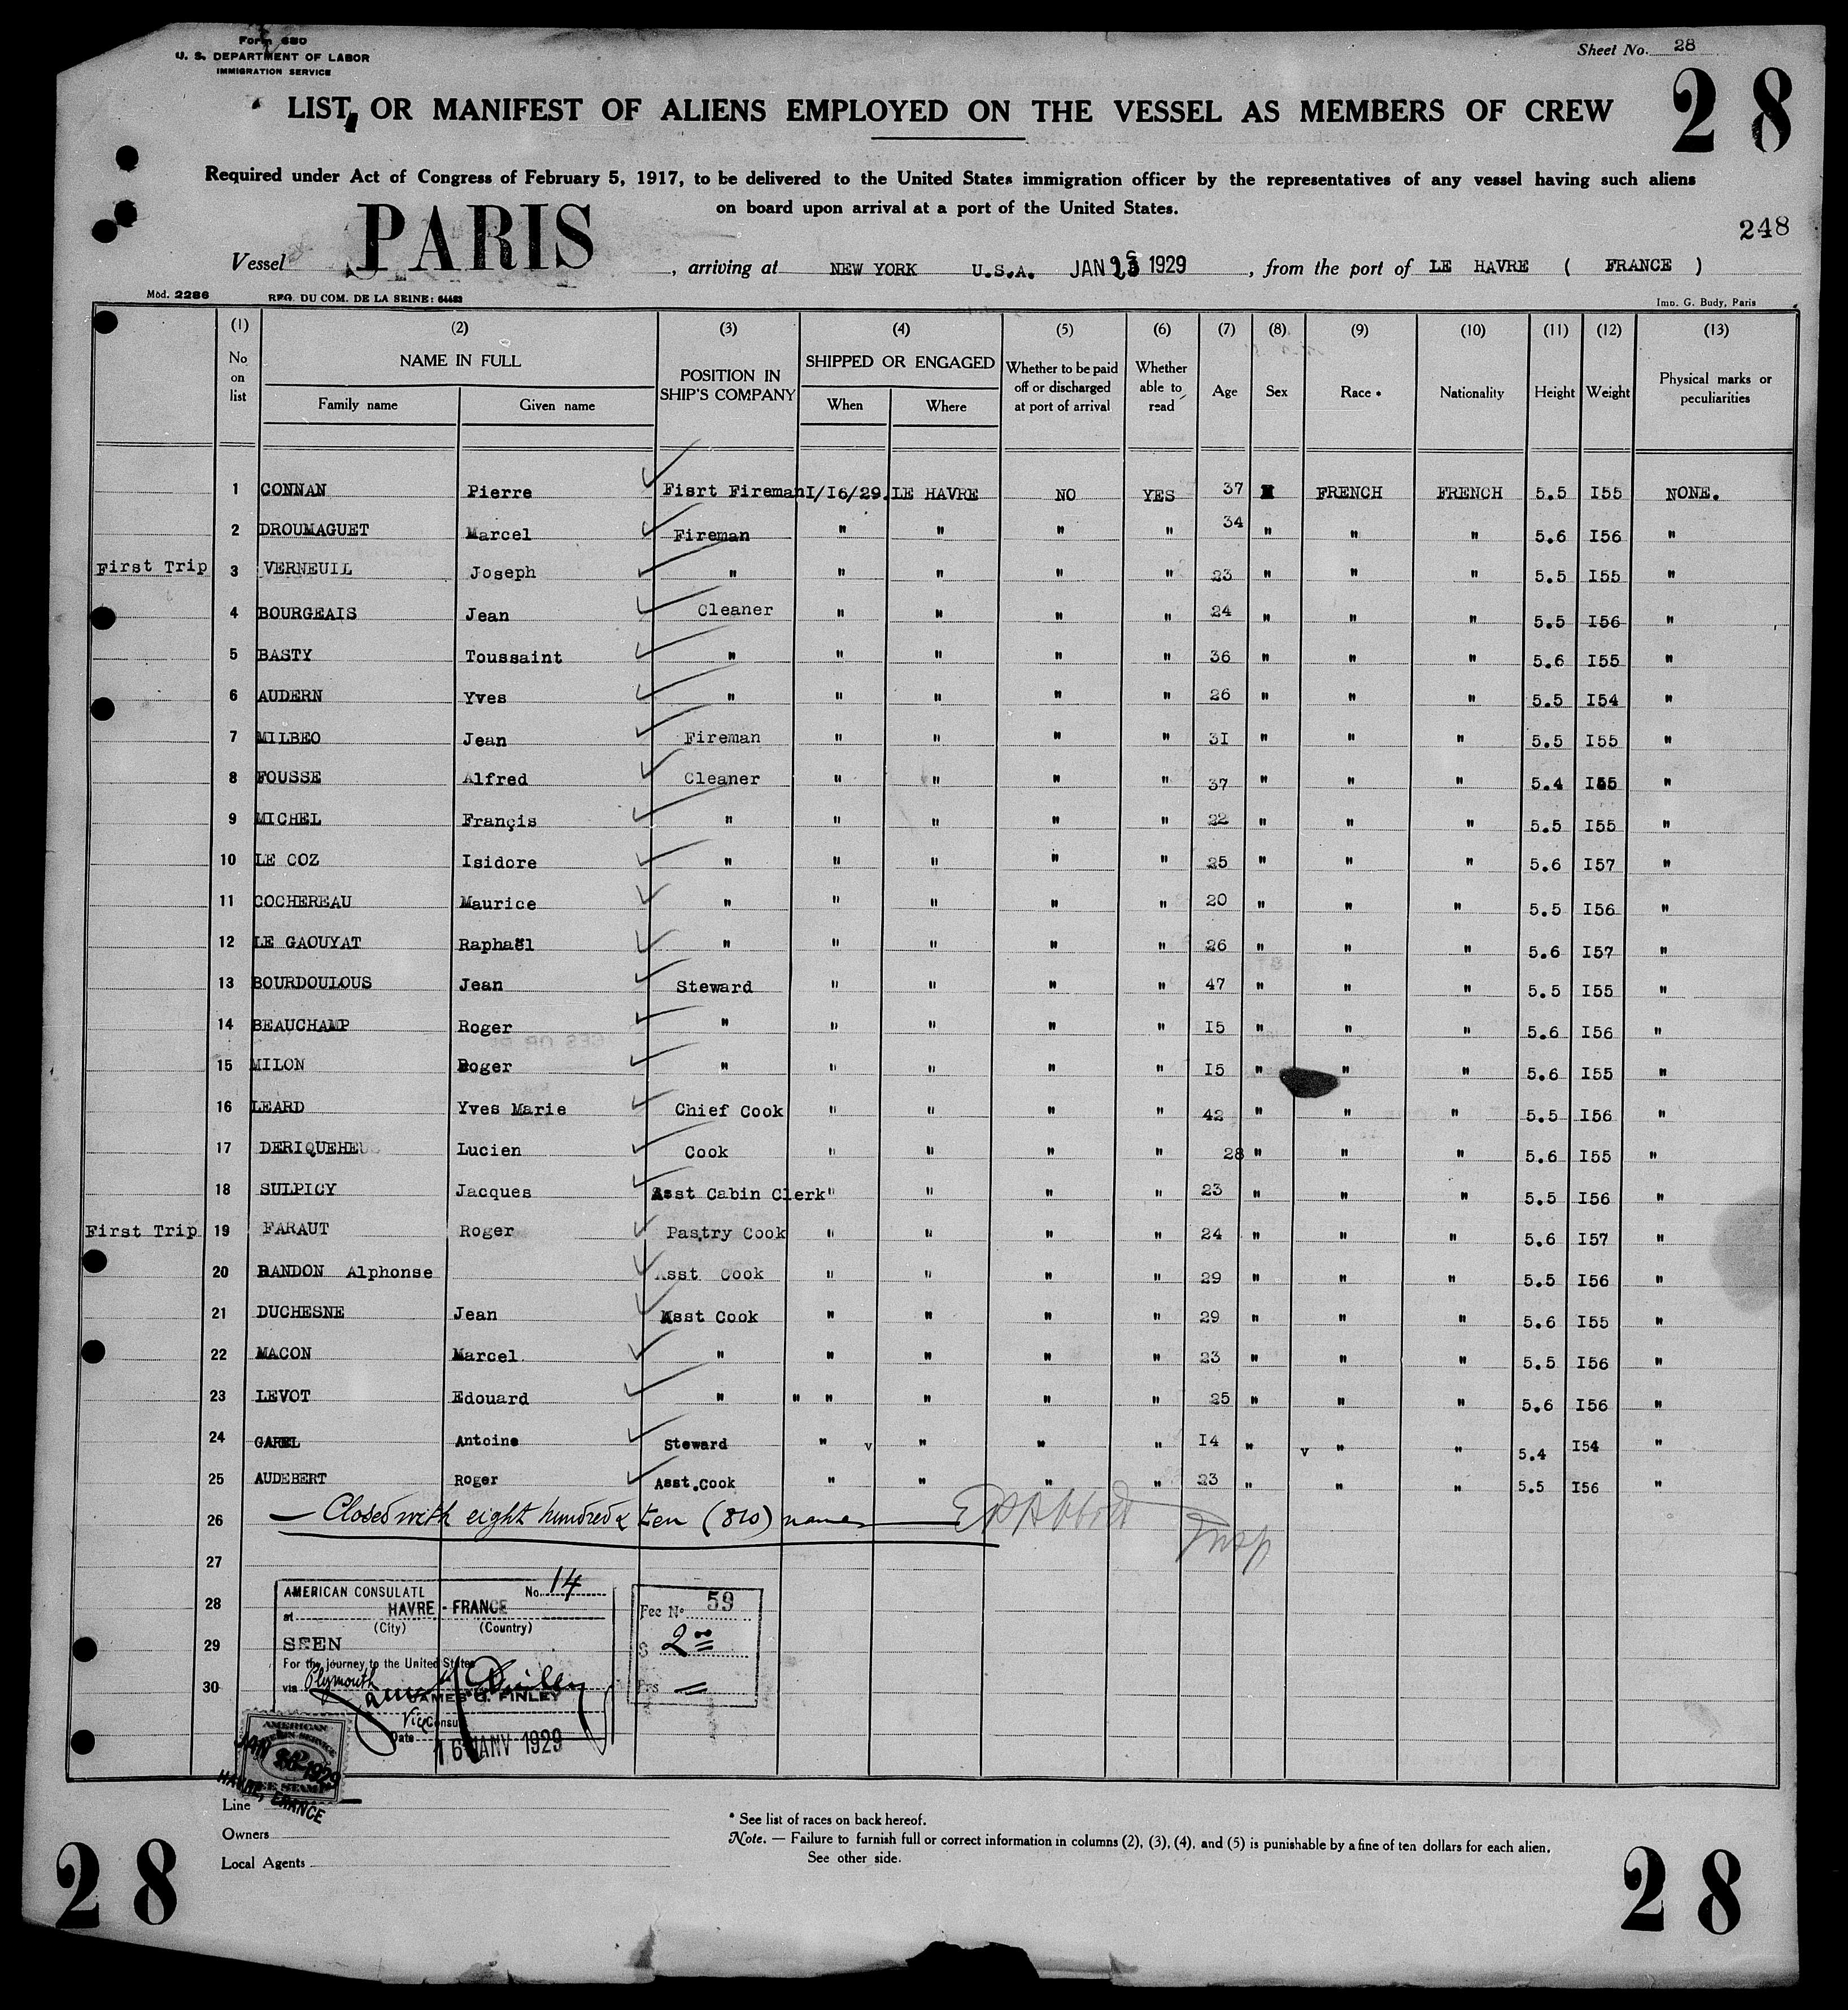 Form 680
U. S. DEPARTMENT OF LABOR
IMMIGRATION SERVICE
Sheet No. 28
28
LIST, OR MANIFEST OF ALIENS EMPLOYED ON THE VESSEL AS MEMBERS OF CREW
Required under Act of Congress of February 5, 1917, to be delivered to the United States immigration officer by the representatives of any vessel having such aliens
on board upon arrival at a port of the United States.
248
Vessel PARIS, arriving at NEW YORK U.S.A. JAN 1929, from the port of LE HAVRE ( FRANCE )
Mod. 2286 REG. DU COM. DE LA SEINE: 64483 Imp. G. Budy, Paris
(1) (2) (3) (4) (5) (6) (7) (8) (9) (10) (11) (12) (13)
No on list NAME IN FULL Family name Given name POSITION IN SHIP'S COMPANY SHIPPED OR ENGAGED When Where Whether to be paid off or discharged at port of arrival Whether able to read Age Sex Race * Nationality Height Weight Physical marks or peculiarities
1 CONNAN Pierre Fisrt Fireman I/I6/29. LE HAVRE NO YES 37 FRENCH FRENCH 5.5 I55 NONE.
2 DROUMAGUET Marcel Fireman " " " " 34 " " " 5.6 I56 "
First Trip 3 VERNEUIL Joseph " " " " " 23 " " " 5.5 I55 "
4 BOURGEAIS Jean Cleaner " " " " 24 " " " 5.5 I56 "
5 BASTY Toussaint " " " " " 36 " " " 5.6 I55 "
6 AUDERN Yves " " " " " 26 " " " 5.5 I54 "
7 MILBEO Jean Fireman " " " " 3I " " " 5.5 I55 "
8 FOUSSE Alfred Cleaner " " " " 37 " " " 5.4 I55 "
9 MICHEL Françis " " " " " 22 " " " 5.5 I55 "
10 LE COZ Isidore " " " " " 25 " " " 5.6 I57 "
11 COCHEREAU Maurice " " " " " 20 " " " 5.5 I56 "
12 LE GAOUYAT Raphaël " " " " " 26 " " " 5.6 I57 "
13 BOURDOULOUS Jean Steward " " " " 47 " " " 5.5 I55 "
14 BEAUCHAMP Roger " " " " " I5 " " " 5.6 I56 "
15 MILON Roger " " " " " I5 " " " 5.6 I55 "
16 LEARD Yves Marie Chief Cook " " " " 42 " " " 5.5 I56 "
17 DERIQUEHEU Lucien Cook " " " " 28 " " " 5.6 I55 "
18 SULPICY Jacques Asst Cabin Clerk " " " " 23 " " " 5.5 I56 "
First Trip 19 FARAUT Roger Pastry Cook " " " " 24 " " " 5.6 I57 "
20 RANDON Alphonse Asst Cook " " " " 29 " " " 5.5 I56 "
21 DUCHESNE Jean Asst Cook " " " " 29 " " " 5.6 I55 "
22 MACON Marcel. " " " " " 23 " " " 5.5 I56 "
23 LEVOT Edouard " " " " " " 25 " " " 5.6 I56 "
24 GAREL Antoine Steward " v " " " I4 " v " " 5.4 I54 "
25 AUDEBERT Roger Asst.Cook " " " " 23 " " " 5.5 I56 "
26 — Closed with eight hundred & ten (810) names — Insp
27
28
29
30
AMERICAN CONSULATE No. 14
at HAVRE - FRANCE
(City) (Country)
SEEN
For the journey to the United States
via Plymouth
JAMES G. FINLEY
Vice Consul
Date 16 JANV 1929
Fee No 59
$ 2.00
Frs =
AMERICAN
FEE STAMP
JAN 1929
HAVRE, FRANCE
Line
Owners
Local Agents
* See list of races on back hereof.
Note. — Failure to furnish full or correct information in columns (2), (3), (4), and (5) is punishable by a fine of ten dollars for each alien.
See other side.
28
28